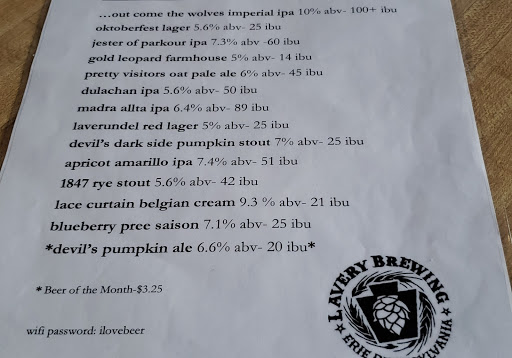 ...out come the wolves imperial ipa 10% abv- 100+ ibu
oktoberfest lager 5.6% abv- 25 ibu
jester of parkour ipa 7.3% abv -60 ibu
gold leopard farmhouse 5% abv- 14 ibu
pretty visitors oat pale ale 6% abv- 45 ibu
dulachan ipa 5.6% abv- 50 ibu
madra allta ipa 6.4% abv- 89 ibu
laverundel red lager 5% abv- 25 ibu
devil's dark side pumpkin stout 7% abv- 25 ibu
apricot amarillo ipa 7.4% abv- 51 ibu
1847 rye stout 5.6% abv- 42 ibu
lace curtain belgian cream 9.3 % abv- 21 ibu
blueberry pree saison 7.1% abv- 25 ibu
*devil's pumpkin ale 6.6% abv- 20 ibu*
* Beer of the Month-$3.25
wifi password: ilovebeer
LAVERY BREWING
ERIE